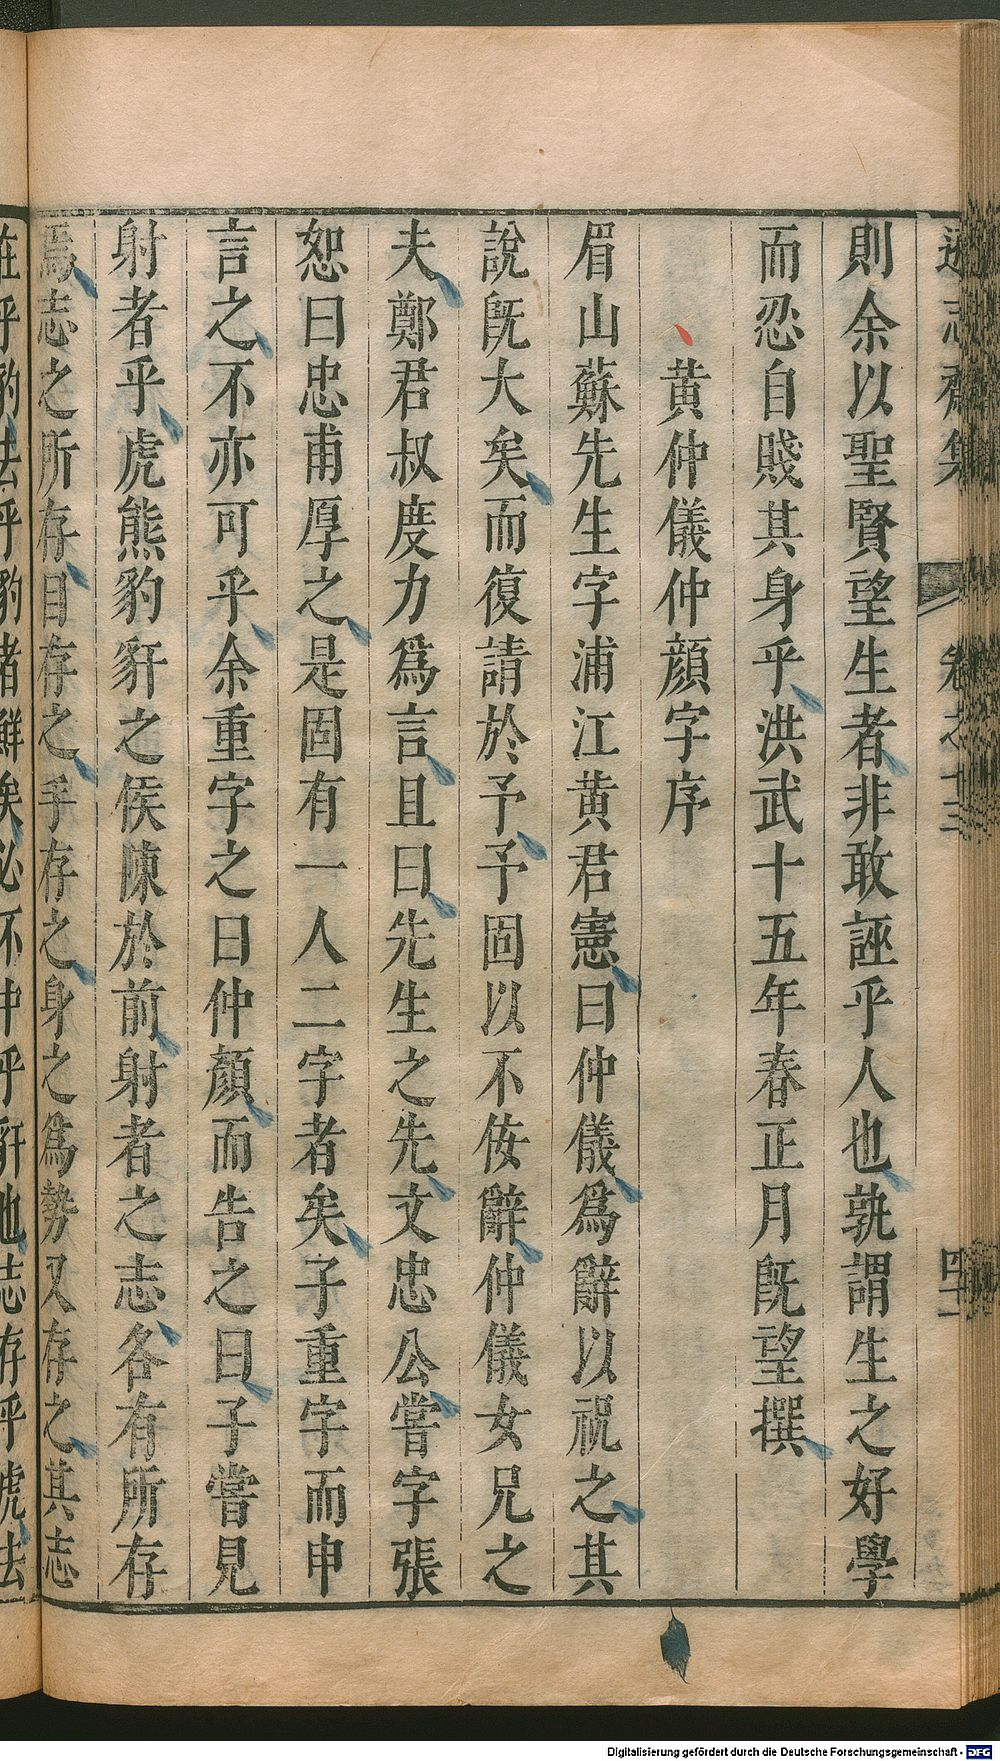 則余以聖賢望生者非敢誣乎人也孰謂生之好學
而忍自賤其身乎洪武十五年春正月旣望撰
黄仲儀仲顔字序
眉山蘇先生字浦江黄君憲曰仲儀爲辭以祝之其
說旣大矣而復請於予予固以不侫辭仲儀女兄之
夫鄭君叔度力爲言且曰先生之先文忠公嘗字張
恕曰忠甫厚之是固有一人二字者矣子重字而申
言之不亦可乎余重字之曰仲顔而告之曰子嘗見
射者乎虎熊豹豻之侯陳於前射者之志各有所存
焉志之所存目存之手存之身之爲勢又存之其志
在乎豹去乎豹者鮮矣必不中乎豻也志存乎虎去
Digitalisierung gefördert durch die Deutsche Forschungsgemeinschaft - DFG